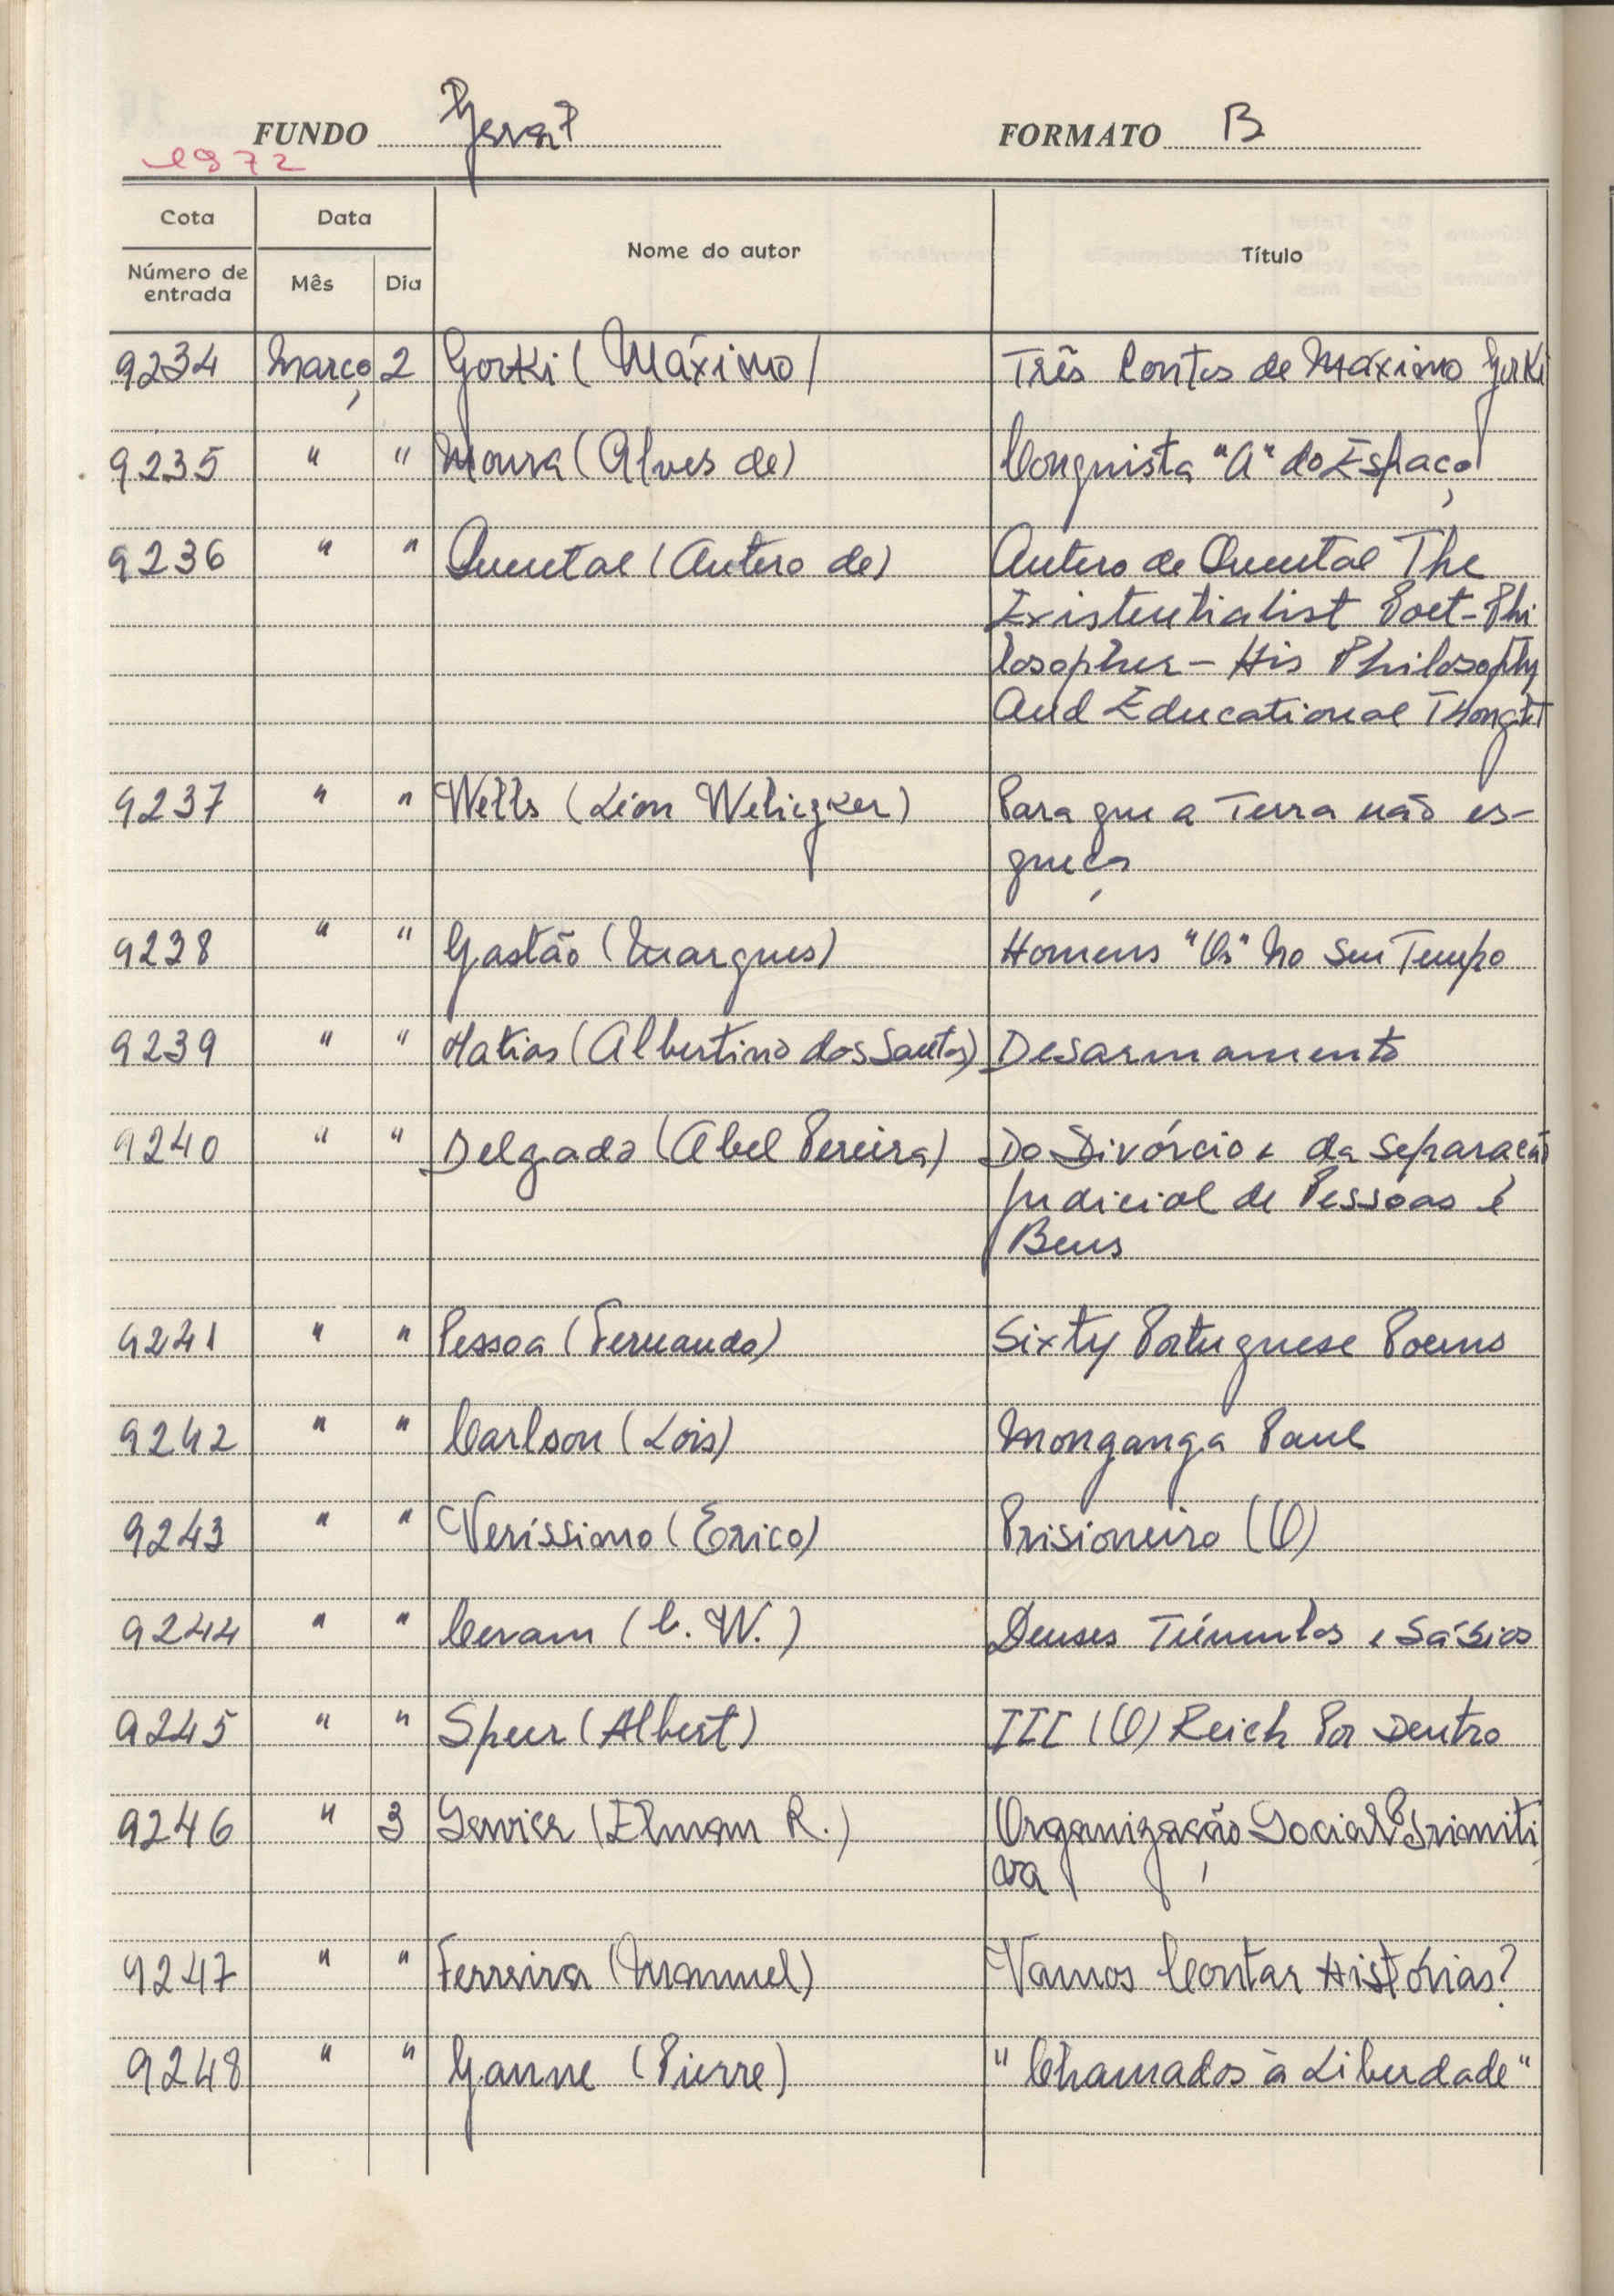 FUNDO Geral FORMATO B
1972
Cota Data Nome do autor Título
Número de entrada Mês Dia
9234 Março 2 Gorki (Máximo) Três Contos de Máximo Gorki
9235 " " Moura (Alves de) Conquista "A" do Espaço
9236 " " Quental (Antero de) Antero de Quental The
Existentialist Poet-Phi
losopher - His Philosophy
And Educational Thought
9237 " " Wells (Léon Weliczker) Para que a Terra não es-
queça
9238 " " Gastão (Marques) Homens "Os" No Seu Tempo
9239 " " Matias (Albertino dos Santos) Desarmamento
9240 " " Delgado (Abel Pereira) Do Divórcio e da Separação
Judicial de Pessoas e
Bens
9241 " " Pessoa (Fernando) Sixty Portuguese Poems
9242 " " Carlson (Lois) Monganga Paul
9243 " " Veríssimo (Erico) Prisioneiro (O)
9244 " " Ceram (C. W.) Deuses Túmulos e Sábios
9245 " " Speer (Albert) III (O) Reich Por Dentro
9246 " 3 Service (Elman R.) Organização Social Primiti
va
9247 " " Ferreira (Manuel) Vamos Contar Histórias?
9248 " " Ganne (Pierre) "Chamados à Liberdade"